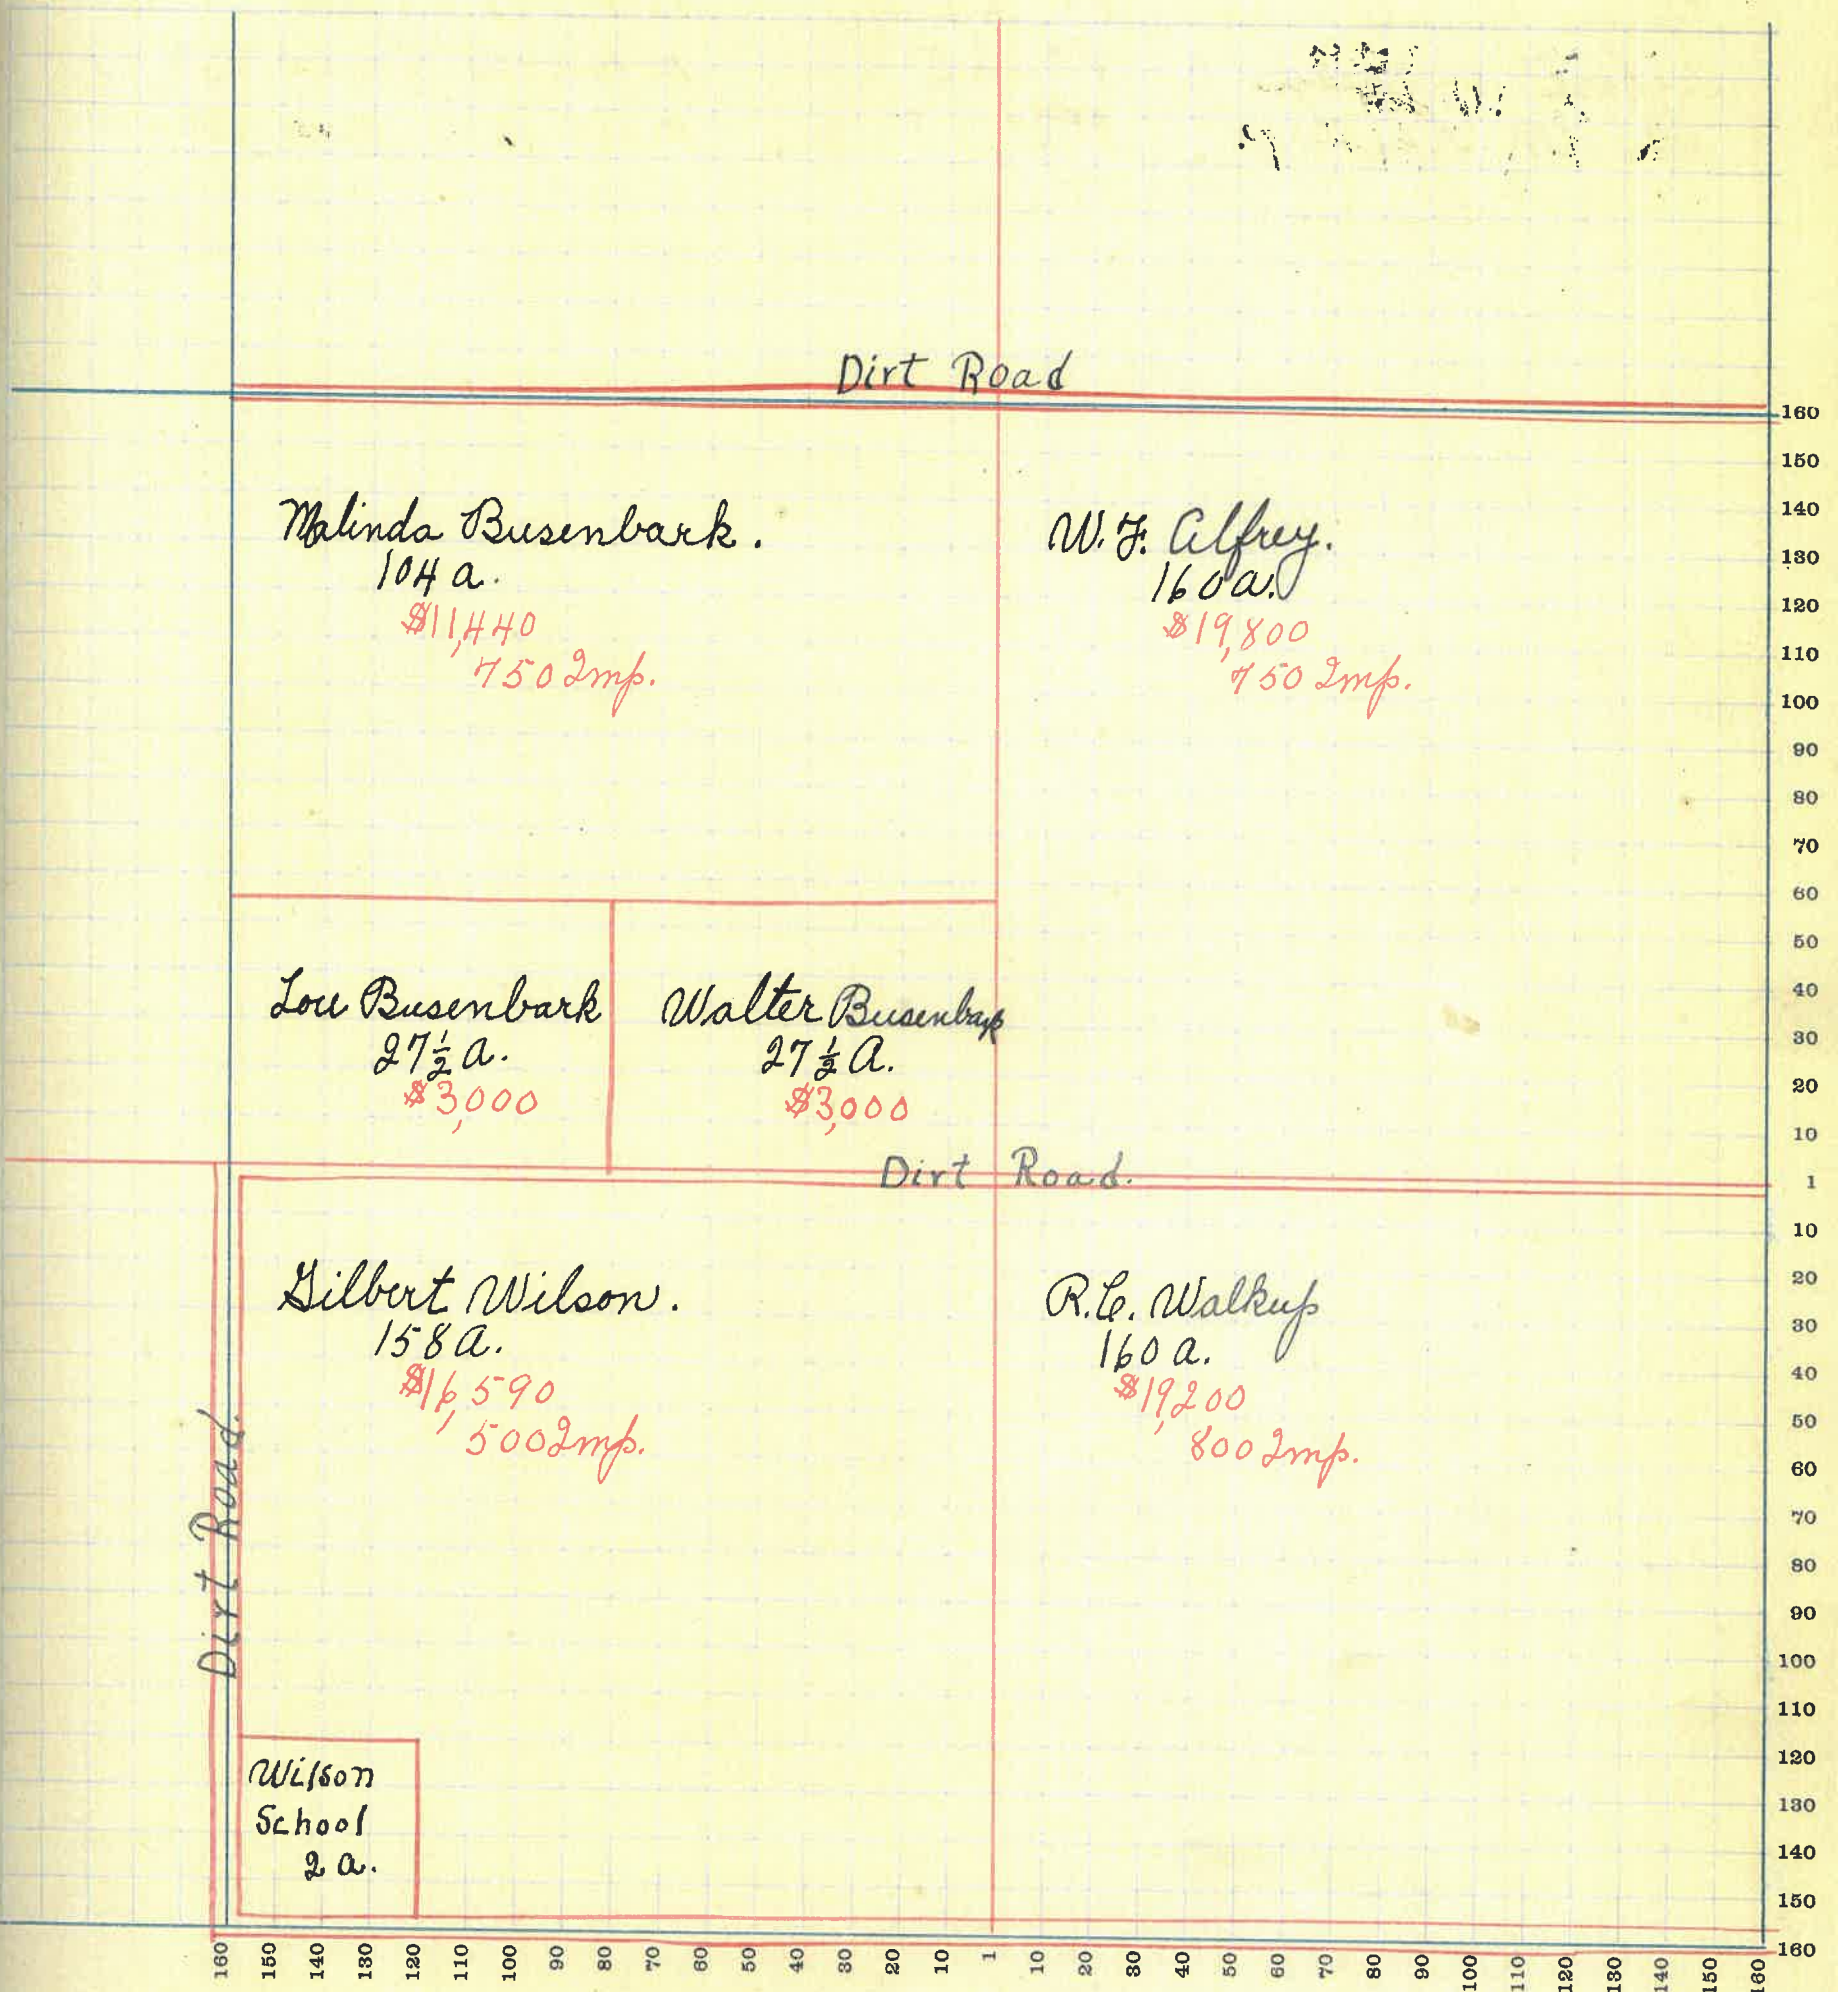 Dirt Road
Malinda Busenbark.
104 a.
$11,440
750 Imp.
W. F. Alfrey.
160 a.
$19,800
750 Imp.
Lou Busenbark
27½ a.
$3,000
Walter Busenbark
27½ A.
$3,000
Dirt Road.
Gilbert Wilson.
158 A.
$16,590
500 Imp.
R. C. Walkup
160 a.
$19,200
800 Imp.
Dirt Road.
Wilson
School
2 a.
160
150
140
130
120
110
100
90
80
70
60
50
40
30
20
10
1
10
20
30
40
50
60
70
80
90
100
110
120
130
140
150
160
160 150 140 130 120 110 100 90 80 70 60 50 40 30 20 10 1 10 20 30 40 50 60 70 80 90 100 110 120 130 140 150 160